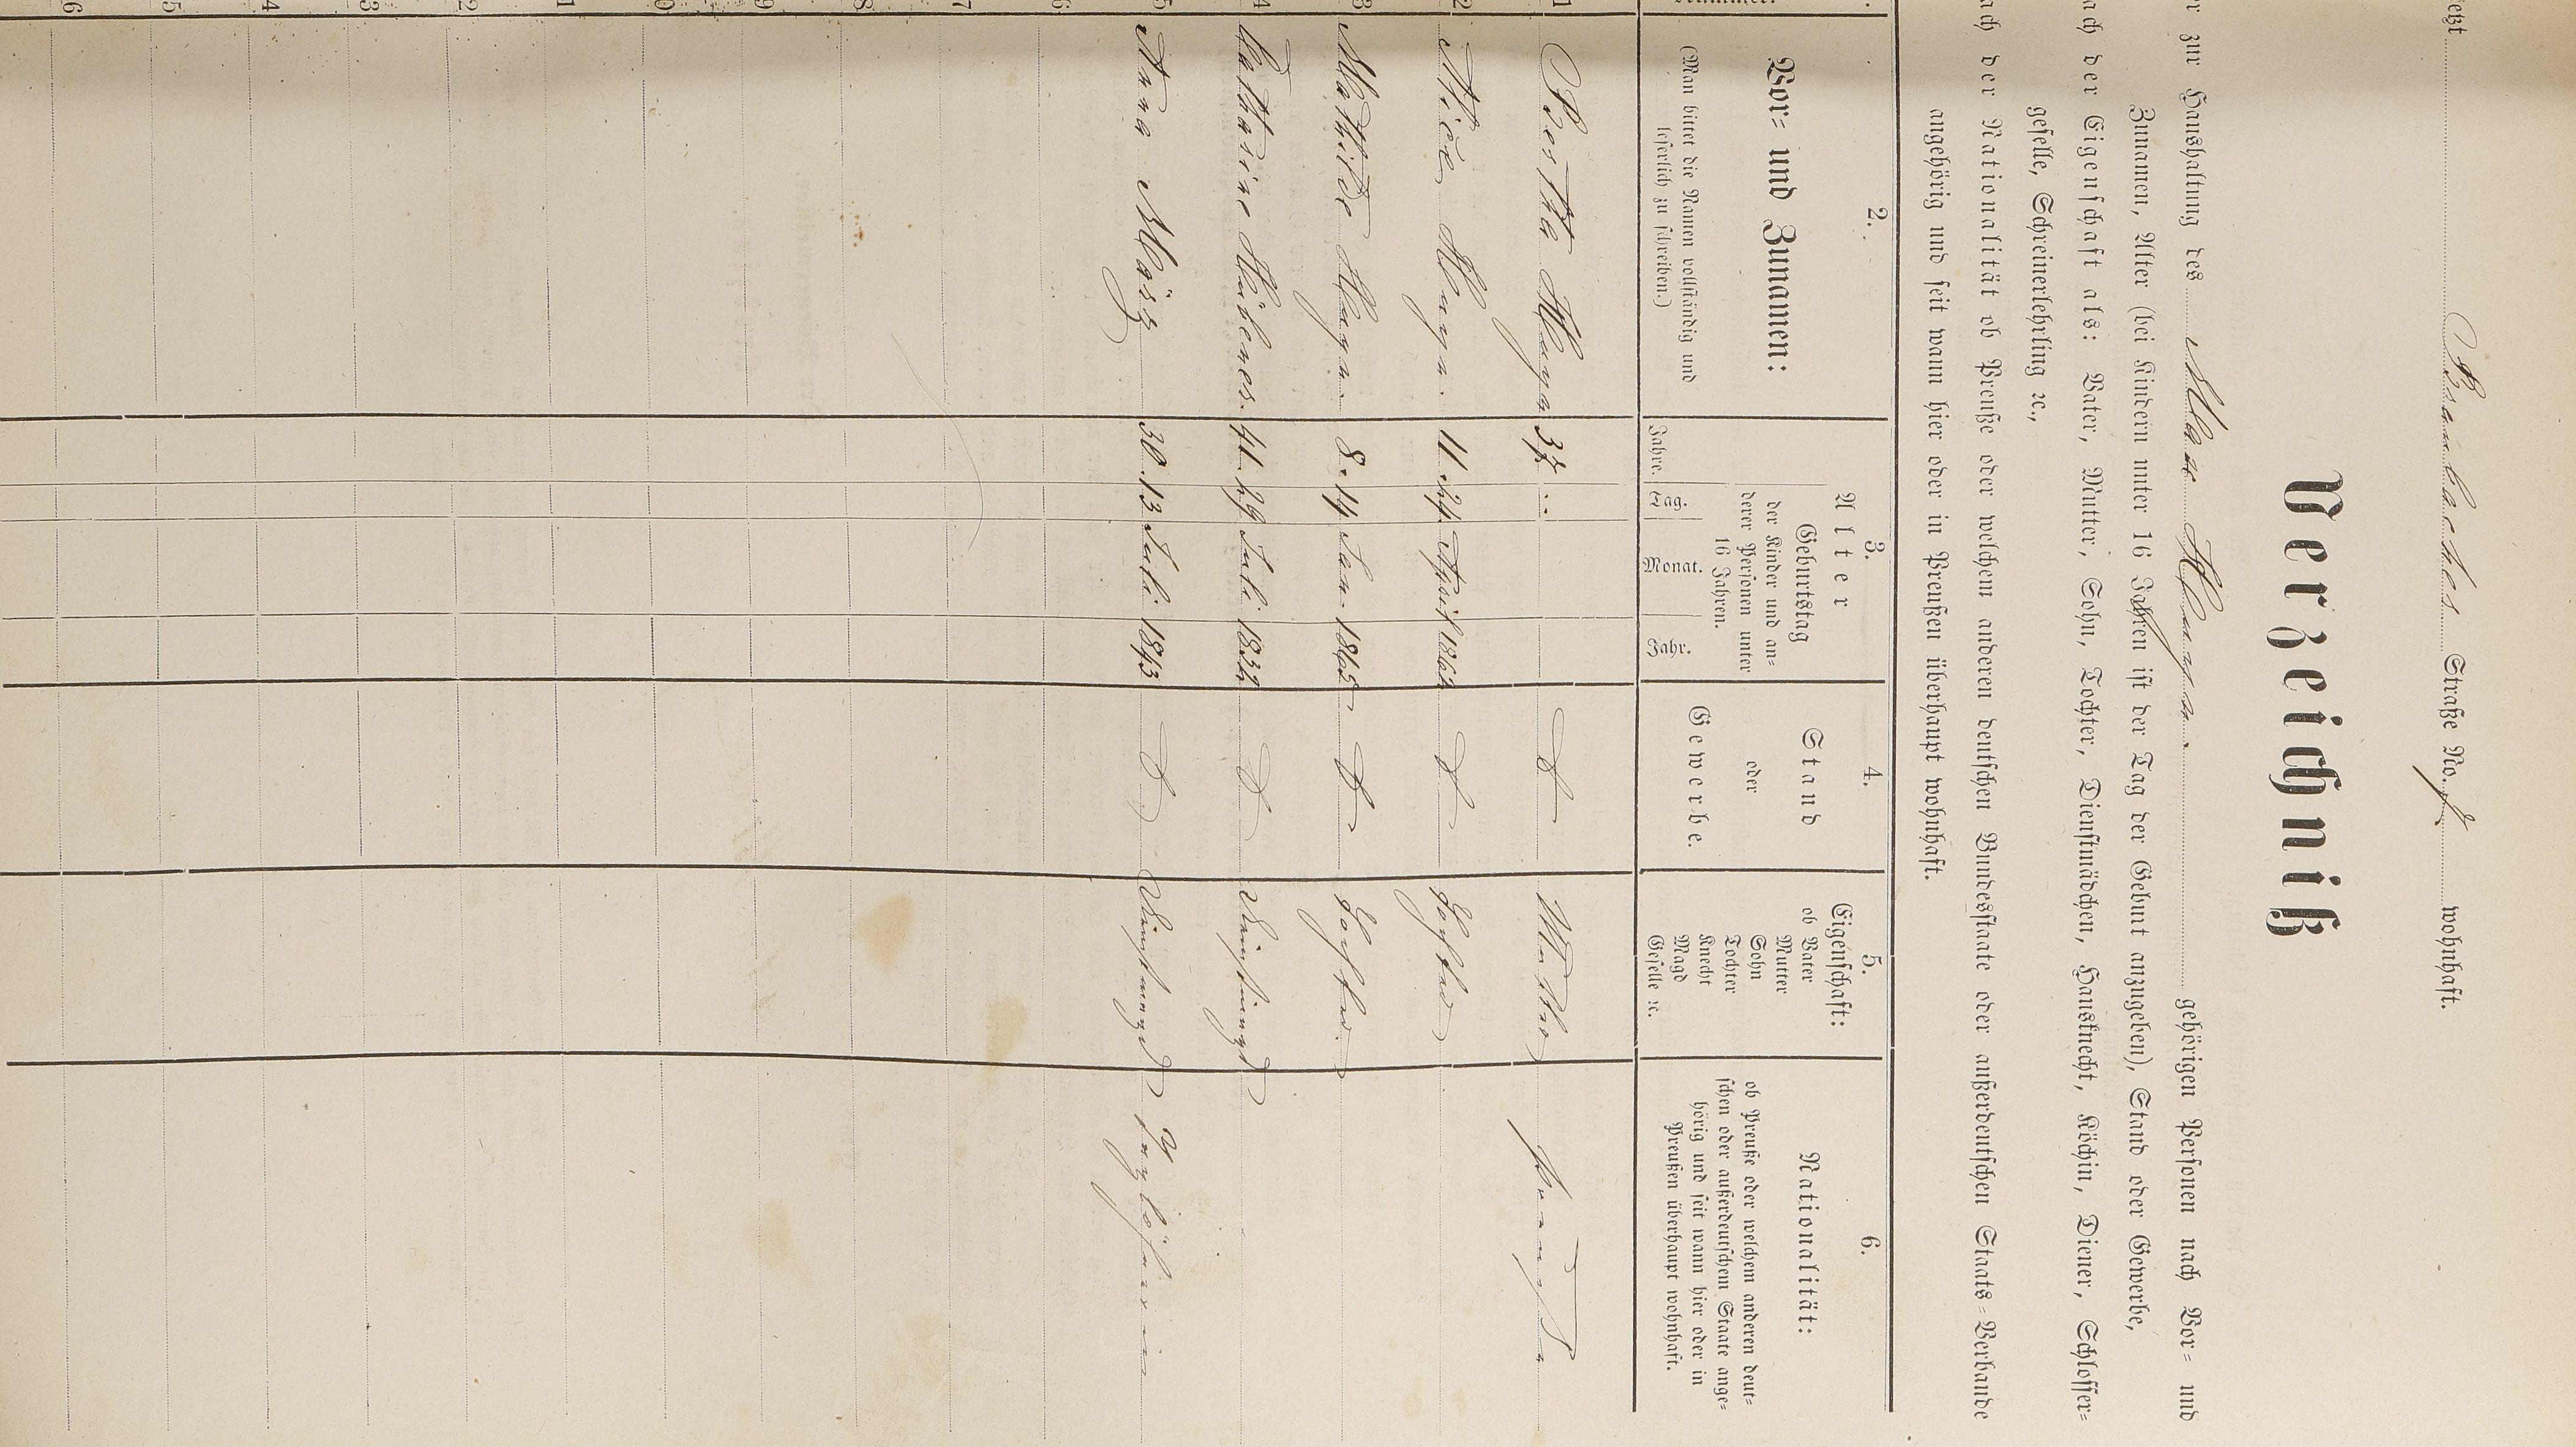 jetzt Brunbacher Straße No. 7 wohnhaft.
Verzeichniß
er zur Haushaltung des Max gehörigen Personen nach Vor= und
Zunamen, Alter (bei Kindern unter 16 Jahren ist der Tag der Geburt anzugeben), Stand oder Gewerbe,
ach der Eigenschaft als: Vater, Mutter, Sohn, Tochter, Dienstmädchen, Hausknecht, Köchin, Diener, Schlosser=
geselle, Schreinerlehrling ꝛc.,
ach der Nationalität ob Preuße oder welchem anderen deutschen Bundesstaate oder außerdeutschen Staats=Verbande
angehörig und seit wann hier oder in Preußen überhaupt wohnhaft.
2. 3. 4. 5. 6.
Vor= und Zunamen:
(Man bittet die Namen vollständig und
leserlich zu schreiben.)
Alter
Geburtstag
der Kinder und an=
derer Personen unter
16 Jahren.
Jahre. Tag. Monat. Jahr.
Stand
oder
Gewerbe.
Eigenschaft:
ob Vater
Mutter
Sohn
Tochter
Knecht
Magd
Geselle ꝛc.
Nationalität:
ob Preuße oder welchem anderen deut=
schen oder außerdeutschem Staate ange=
hörig und seit wann hier oder in
Preußen überhaupt wohnhaft.
1 Bertha 37 Mutter
2 Alice 11 24 April 1862 Tochter
3 Mathilde 8 14 Jan. 1865 Tochter
4 Katharine 41 29 Juli 1832 Dienstmagd
5 Anna März 30 13 Juli 1843 Dienstmagd
6
7
8
9
0
1
2
3
4
5
6